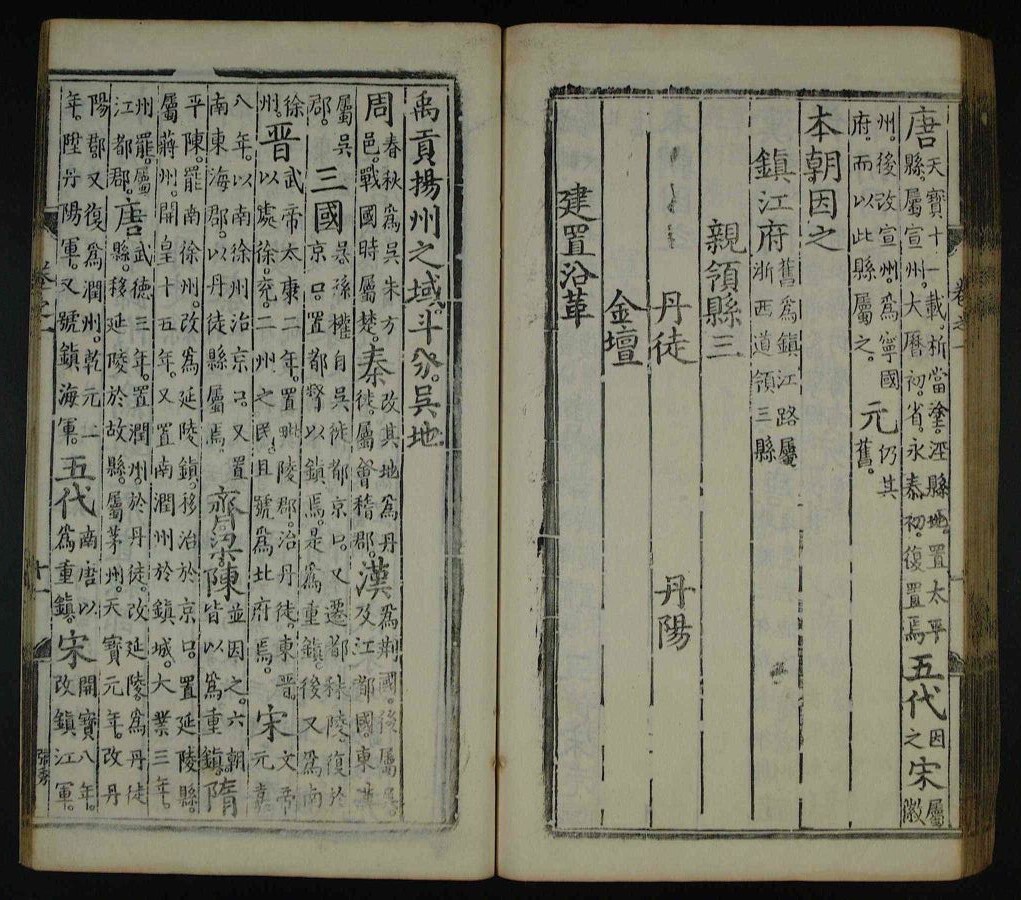 唐天寶十一載。析當塗涇縣地。置太平縣屬宣州。大曆初。省。永泰初。復置焉五代因之宋屬徽
州。後改宣州。為寧國府。而以此縣屬之。元仍其舊。
本朝因之
鎮江府舊為鎮江路屬浙西道領三縣
親領縣三
丹徒 丹陽
金壇
建置沿革
禹貢揚州之域。斗分。吳地
周春秋為吳朱方邑。戰國時屬楚。秦改其地為丹徒。屬會稽郡。漢為荆國。後屬及江都國。東漢
屬吳郡。三國吳孫權自吳徙都京口。又遷都秣陵。復於京口。置都督以鎮焉。是為重鎮。後又為南
徐州。晉武帝太康二年。置毗陵郡。治丹徒。東晉以處徐兗。二州之民。且號為北府焉。宋文帝元嘉
八年。以南徐州治京口。又置南東海郡。以丹徒縣屬焉。齊梁陳並因之。六朝皆以為重鎮。隋
平陳。罷南徐州。改為延陵鎮。移治於京口。置延陵縣。屬蔣州。開皇十五年。又置南潤州於鎮城。大業三年。
州罷。屬江都郡。唐武德三年。置潤州。於丹徒。改延陵。為丹徒縣。移延陵於故縣。屬茅州。天寶元年。改丹
陽郡。又復為潤州。乾元二年。陞丹陽軍。又號鎮海軍。五代南唐以為重鎮。宋開寶八年。改鎮江軍。
卷之一
十一